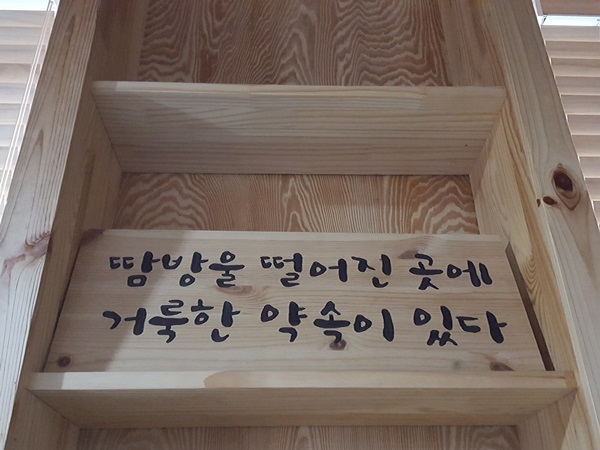 땀방울 떨어진 곳에
거룩한 약속이 있다